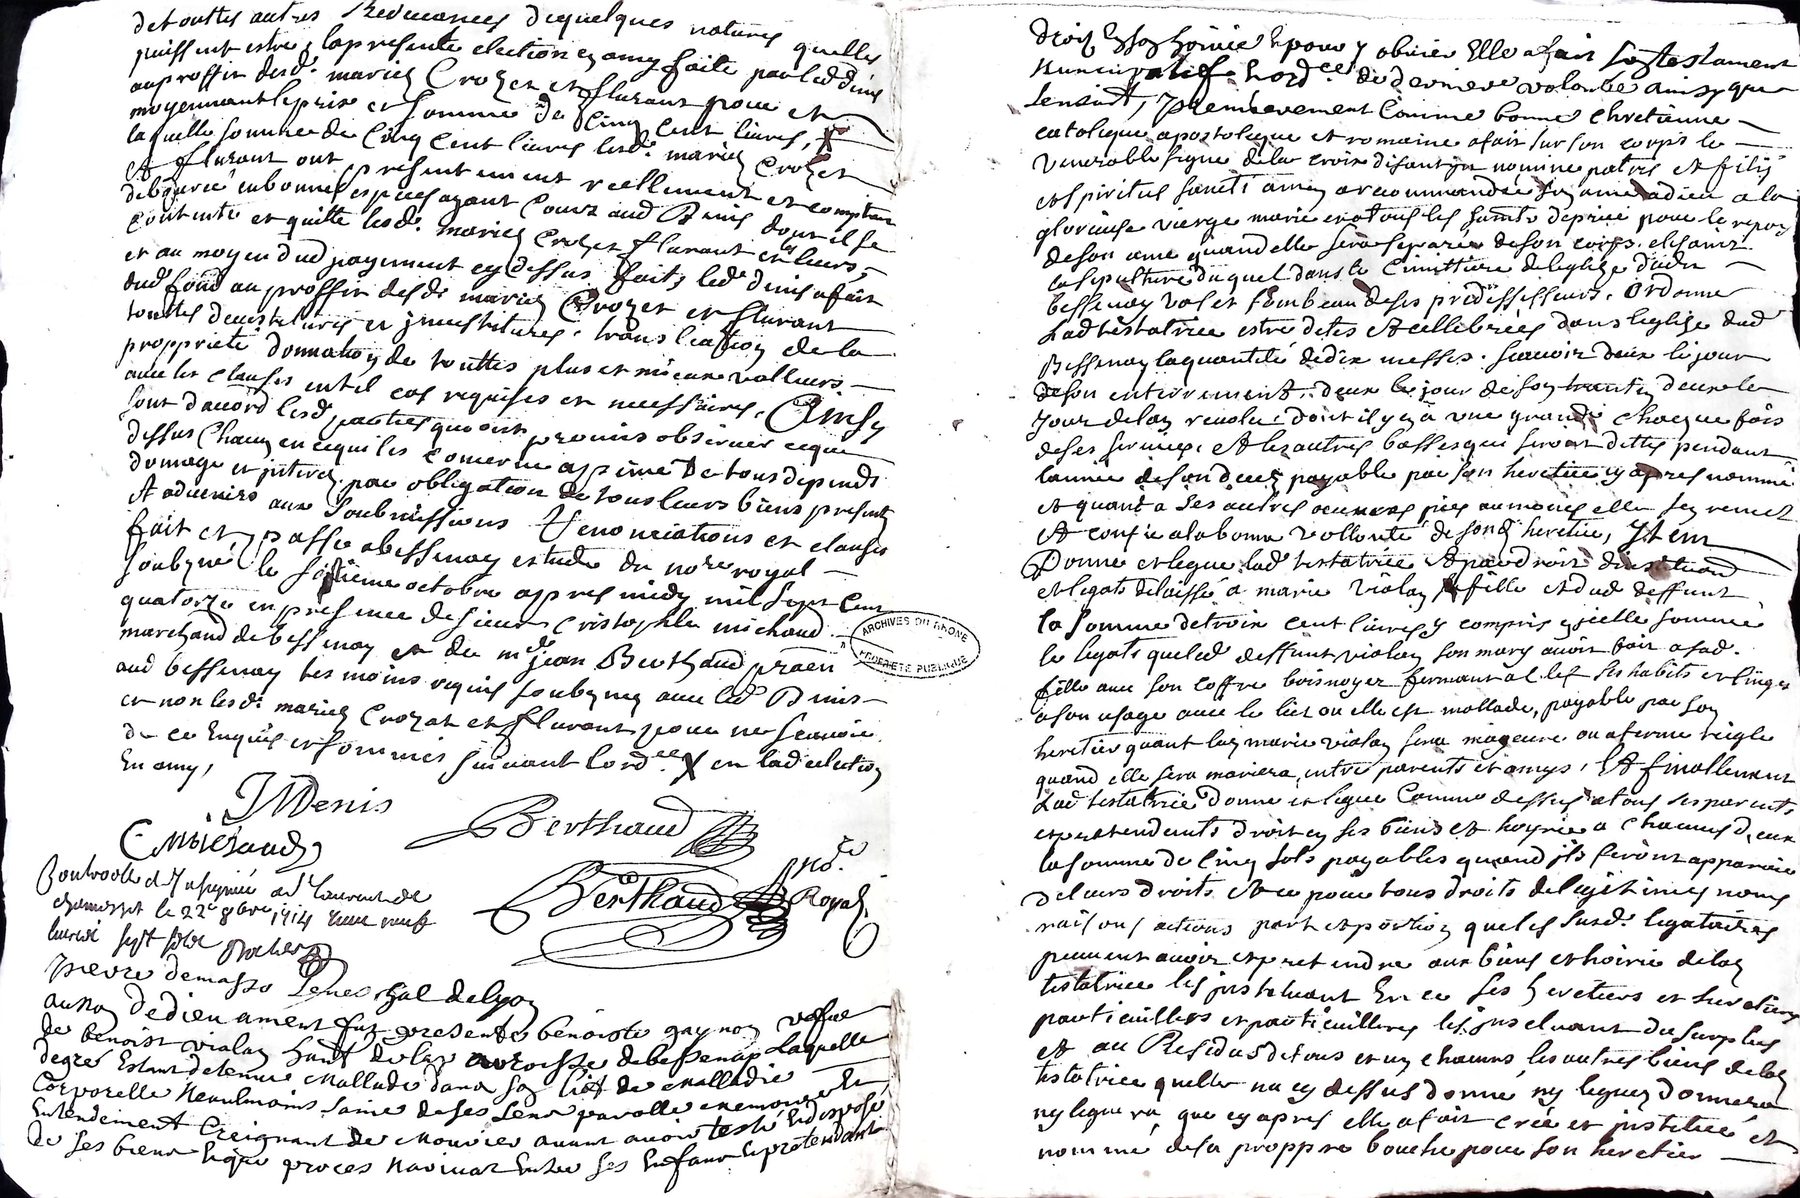 de touttes autres Redevances dequelques natures quelles
puissent estre, la presente election en amy faite par led denis
au proffit desd. mariez Crozet et flurant pour et
moyennant le prix et somme de Cinq Cent livres, X
laquelle somme de Cinq Cent livres lesd. mariez Crozet
et flurant ont presentement reellement et comptant
deboursé en bonnes especes ayant Cours aud Denis dont il se
contente et quitte lesd. mariez Crozet flurant et les leurs,
et au moyen dud payement cy dessus fait, led denis a fait
dud fond au proffit desd. mariez Crozet et flurant
touttes devestitures et investitures, translation de la
proprieté donnation de touttes plus et mieux valleurs
avec les clauses en tel cas requises et necessaires, Ainsy
sont d'accord lesd parties qui ont promis observer ce que
dessus Chacun en ce qui les concerne a peine De tous depends
domage et interez, par obligation de tous leurs biens presents
et advenirs aux soubmissions Renonciations et clauses
fait et passé a bessenay estude du nore royal
soubsigné le septieme octobre apres midy mil sept cent
quatorze en presence de sieur Cristophle michaud
marchand de bessenay et de me jean Berthaud praen
aud bessenay tesmoins requis soubsignez avec led Denis
et non lesd. mariez Crozet et flurant pour ne scavoir
de ce Enquis et sommés suivant lord.ce X en lad election
En amy,
JMDenis
Berthaud
C Michaud
Berthaud no.re Royal
ARCHIVES DU RHONE
PROPRIETE PUBLIQUE
Controollé et Insinué a St Laurent de
chamousset le 22e 8bre 1714 une neuf
sept sols
pierre demasso Senechal de lyon
au non de dieu ament fut presente benoiste gaynon vefue
de benoist violay de la parroisse de bessenay Laquelle
degré Estant detenue Mallade dans son lict de Malladie
Corporelle Neaulmoins saine de ses sens parolle memoire Et
Entendement Creignant de Mourir avant avoir testé Et disposé
de ses biens Et que proces Navinct Entre ses Enfans Et pretendant
droit En son hoirie Et pour y obvier Elle a fait son testament
Nuncupatif Et ord.ce de derniere volonté ainsy que
sensuit, Premierement Comme bonne chretienne
catolique apostolique et romaine a fait sur son corps le
venerable signe de la croix disant in nomine patris et filij
et spiritus sancti amen a recommandée son ame a dieu a la
glorieuse vierge marie et a tous les saints de prier pour le repoz
de son ame quand elle sera separée de son corps, elisant
la sepulture diquel dans le Cimittiere de leglize dudit
bessenay vas et tombeau de ses predessesseurs, Ordonne
Lad testatrice estre dites et cellebrées dans leglize dud
Bessenay la quantité de dix messes, scavoir deux le jour
de son enterrement, deux le jour de son trantin, deux le
jour de lan revolu dont il y en a une grande Chacque fois
de ses services, et les autres basses qui seront dittes pendant
lannée de son decez payable par son heretier cy apres nommé
et quant a ses autres oeuvres pies aumones elle sen remet
et confie a la bonne vollonté de sond. heretier, Item
Donne et legue lad testatrice et par droit dinstitution
et legats delaissé a marie violay sa fille et dud deffunt
la somme de trois cent livres y compris icelle somme
le legats que led deffunt violay son mary avoit fait a sad.
fille avec son coffre bois noyer fermant a clef ses habits et linges
a son usage avec le lict ou elle est mallade, payable par son
heretier quant lad marie violay sera majeure ou a terme reigle
quand elle sera mariera, entre parents et amys, Et finallement
Lad testatrice Donne et legue Comme dessus a tous ses parents
et pretendants droit en ses biens et hoyrie a chacuns deux
la somme de Cinq sols payables quand ils feront apparoir
de leurs droits et ce pour tous droits de legitimes noms
raisons actions part et portion que les susd. legataires
peuvent avoir et pretendre aux biens et hoirie de lad
testatrice les instituant En ce ses heretiers et heretieres
particuilliers et particuillieres les excluant du surplus
et au Residus de tous et un chacuns les autres biens de lad
testatrice quelle na cy dessus donné, ny legué, donnera
ny leguera, que cy apres elle a fait créé et institué et
nommé de sa proppre bouche pour son heretier